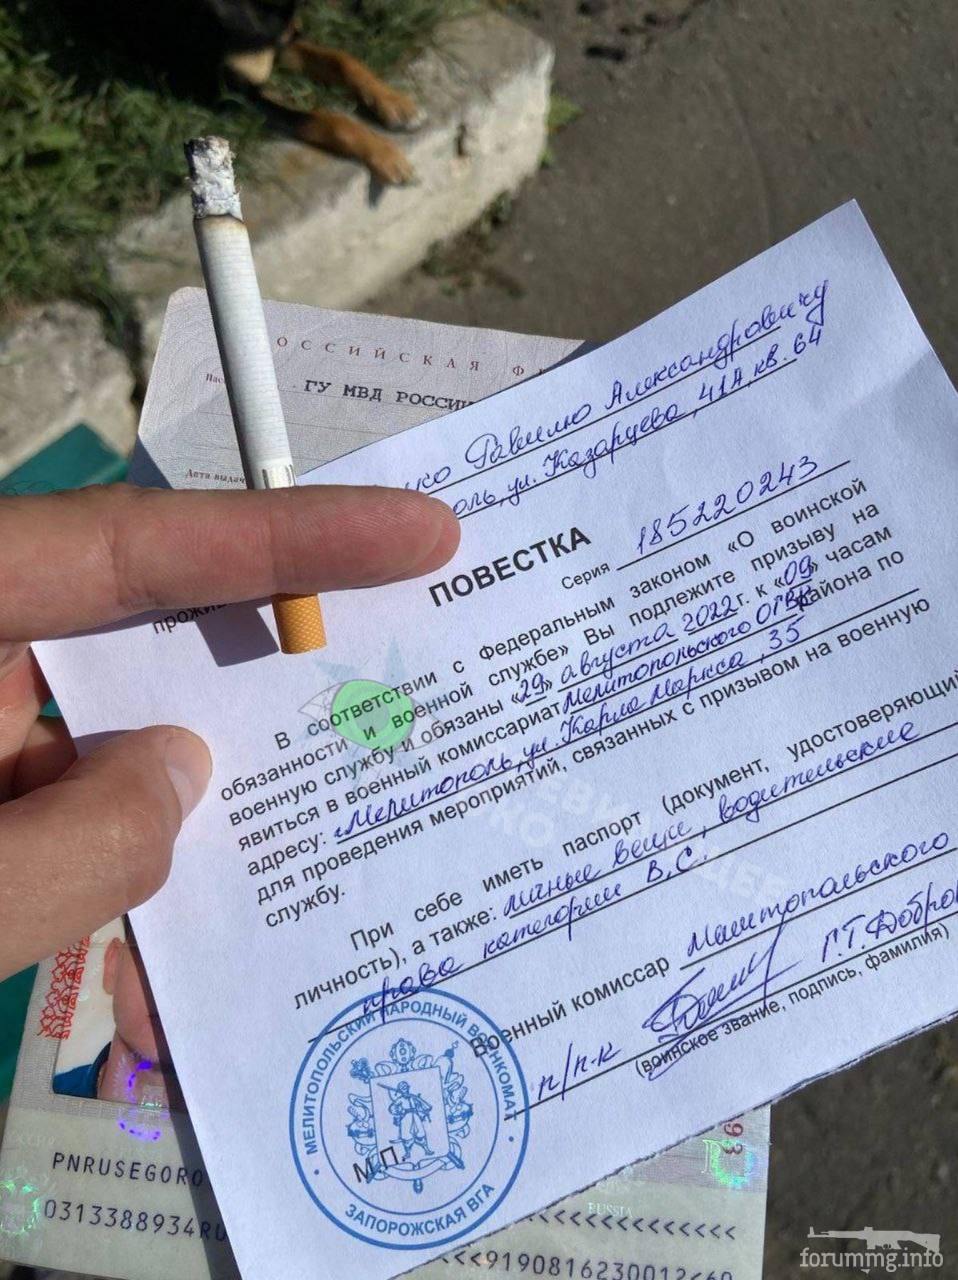 РОССИЙСКАЯ Ф
ГУ МВД РОССИИ
Дата выдач
Равилю Александровичу
ул. Казарцева, 41А, кв. 64
прожив
ПОВЕСТКА
Серия 185220243
В соответствии с Федеральным законом «О воинской
обязанности и военной службе» Вы подлежите призыву на
военную службу и обязаны «29» августа 2022 г. к «09» часам
явиться в военный комиссариат Мелитопольского ОГВК района по
адресу: г. Мелитополь, ул. Карла Маркса, 35
для проведения мероприятий, связанных с призывом на военную
службу.
При себе иметь паспорт (документ, удостоверяющий
личность), а также: личные вещи, водительские
права категории В, С.
Военный комиссар Мелитопольского
п/п-к Г.Т. Добров
(воинское звание, подпись, фамилия)
М.П.
МЕЛИТОПОЛЬСКИЙ НАРОДНЫЙ ВОЕНКОМАТ
ЗАПОРОЖСКАЯ ВГА
PNRUSEGORO
0313388934RU
RUSSIA
<<<<<<<<<<<<<
<<<9190816230012<60
forummg.info